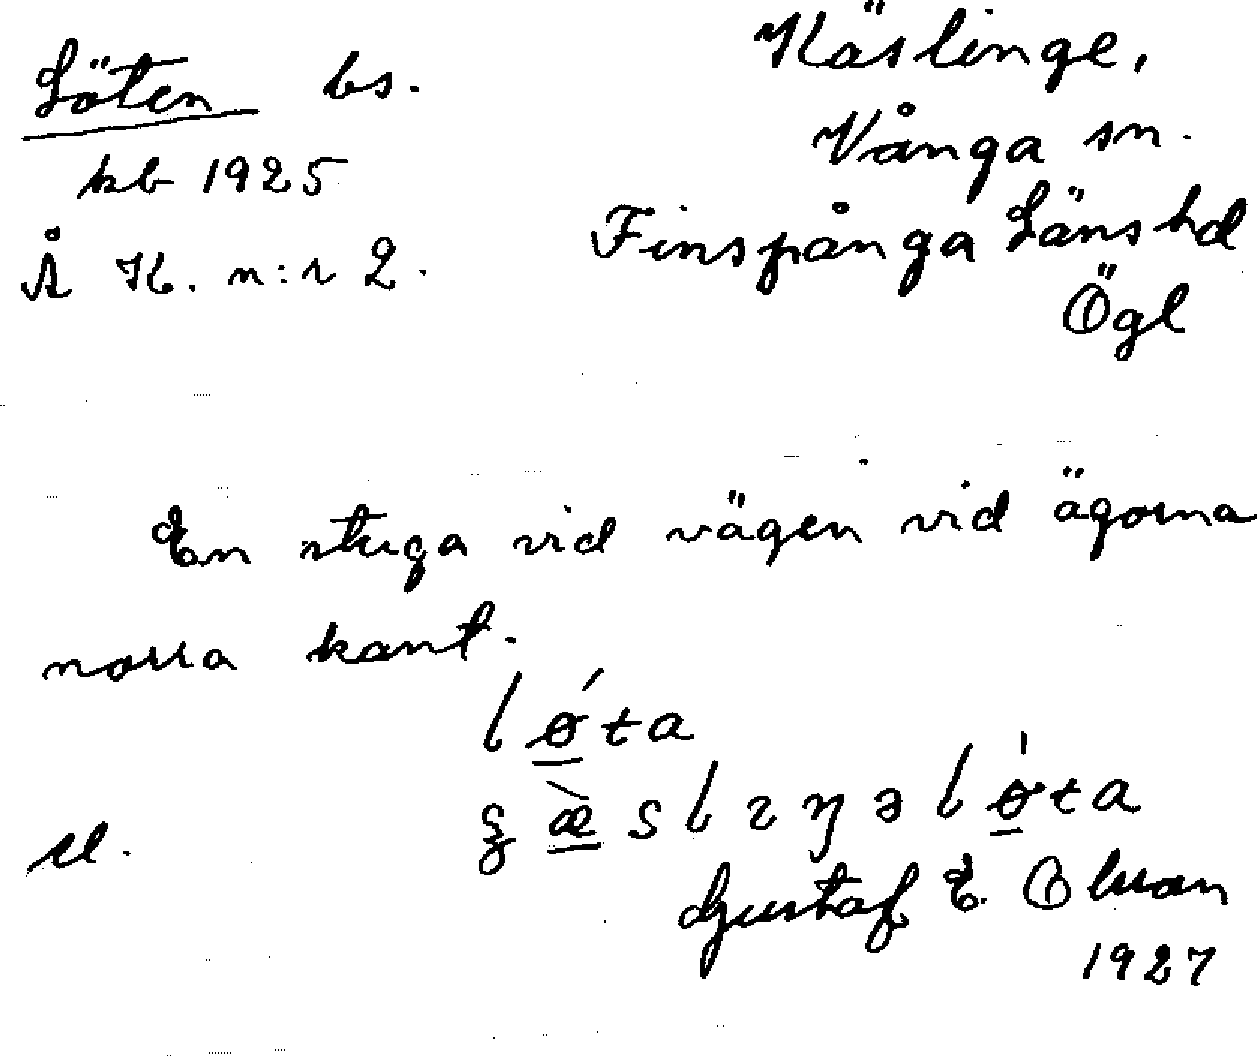 Löten bs.
kb 1925
Å K. n:r 2.
Käslinge,
Vånga sn.
Finspånga Länshd
Ögl
En stuga vid vägen vid ägorna
norra kant.
lǿta
el. æ̀slıŋəlǿta
Gustaf E. Olsson
1927